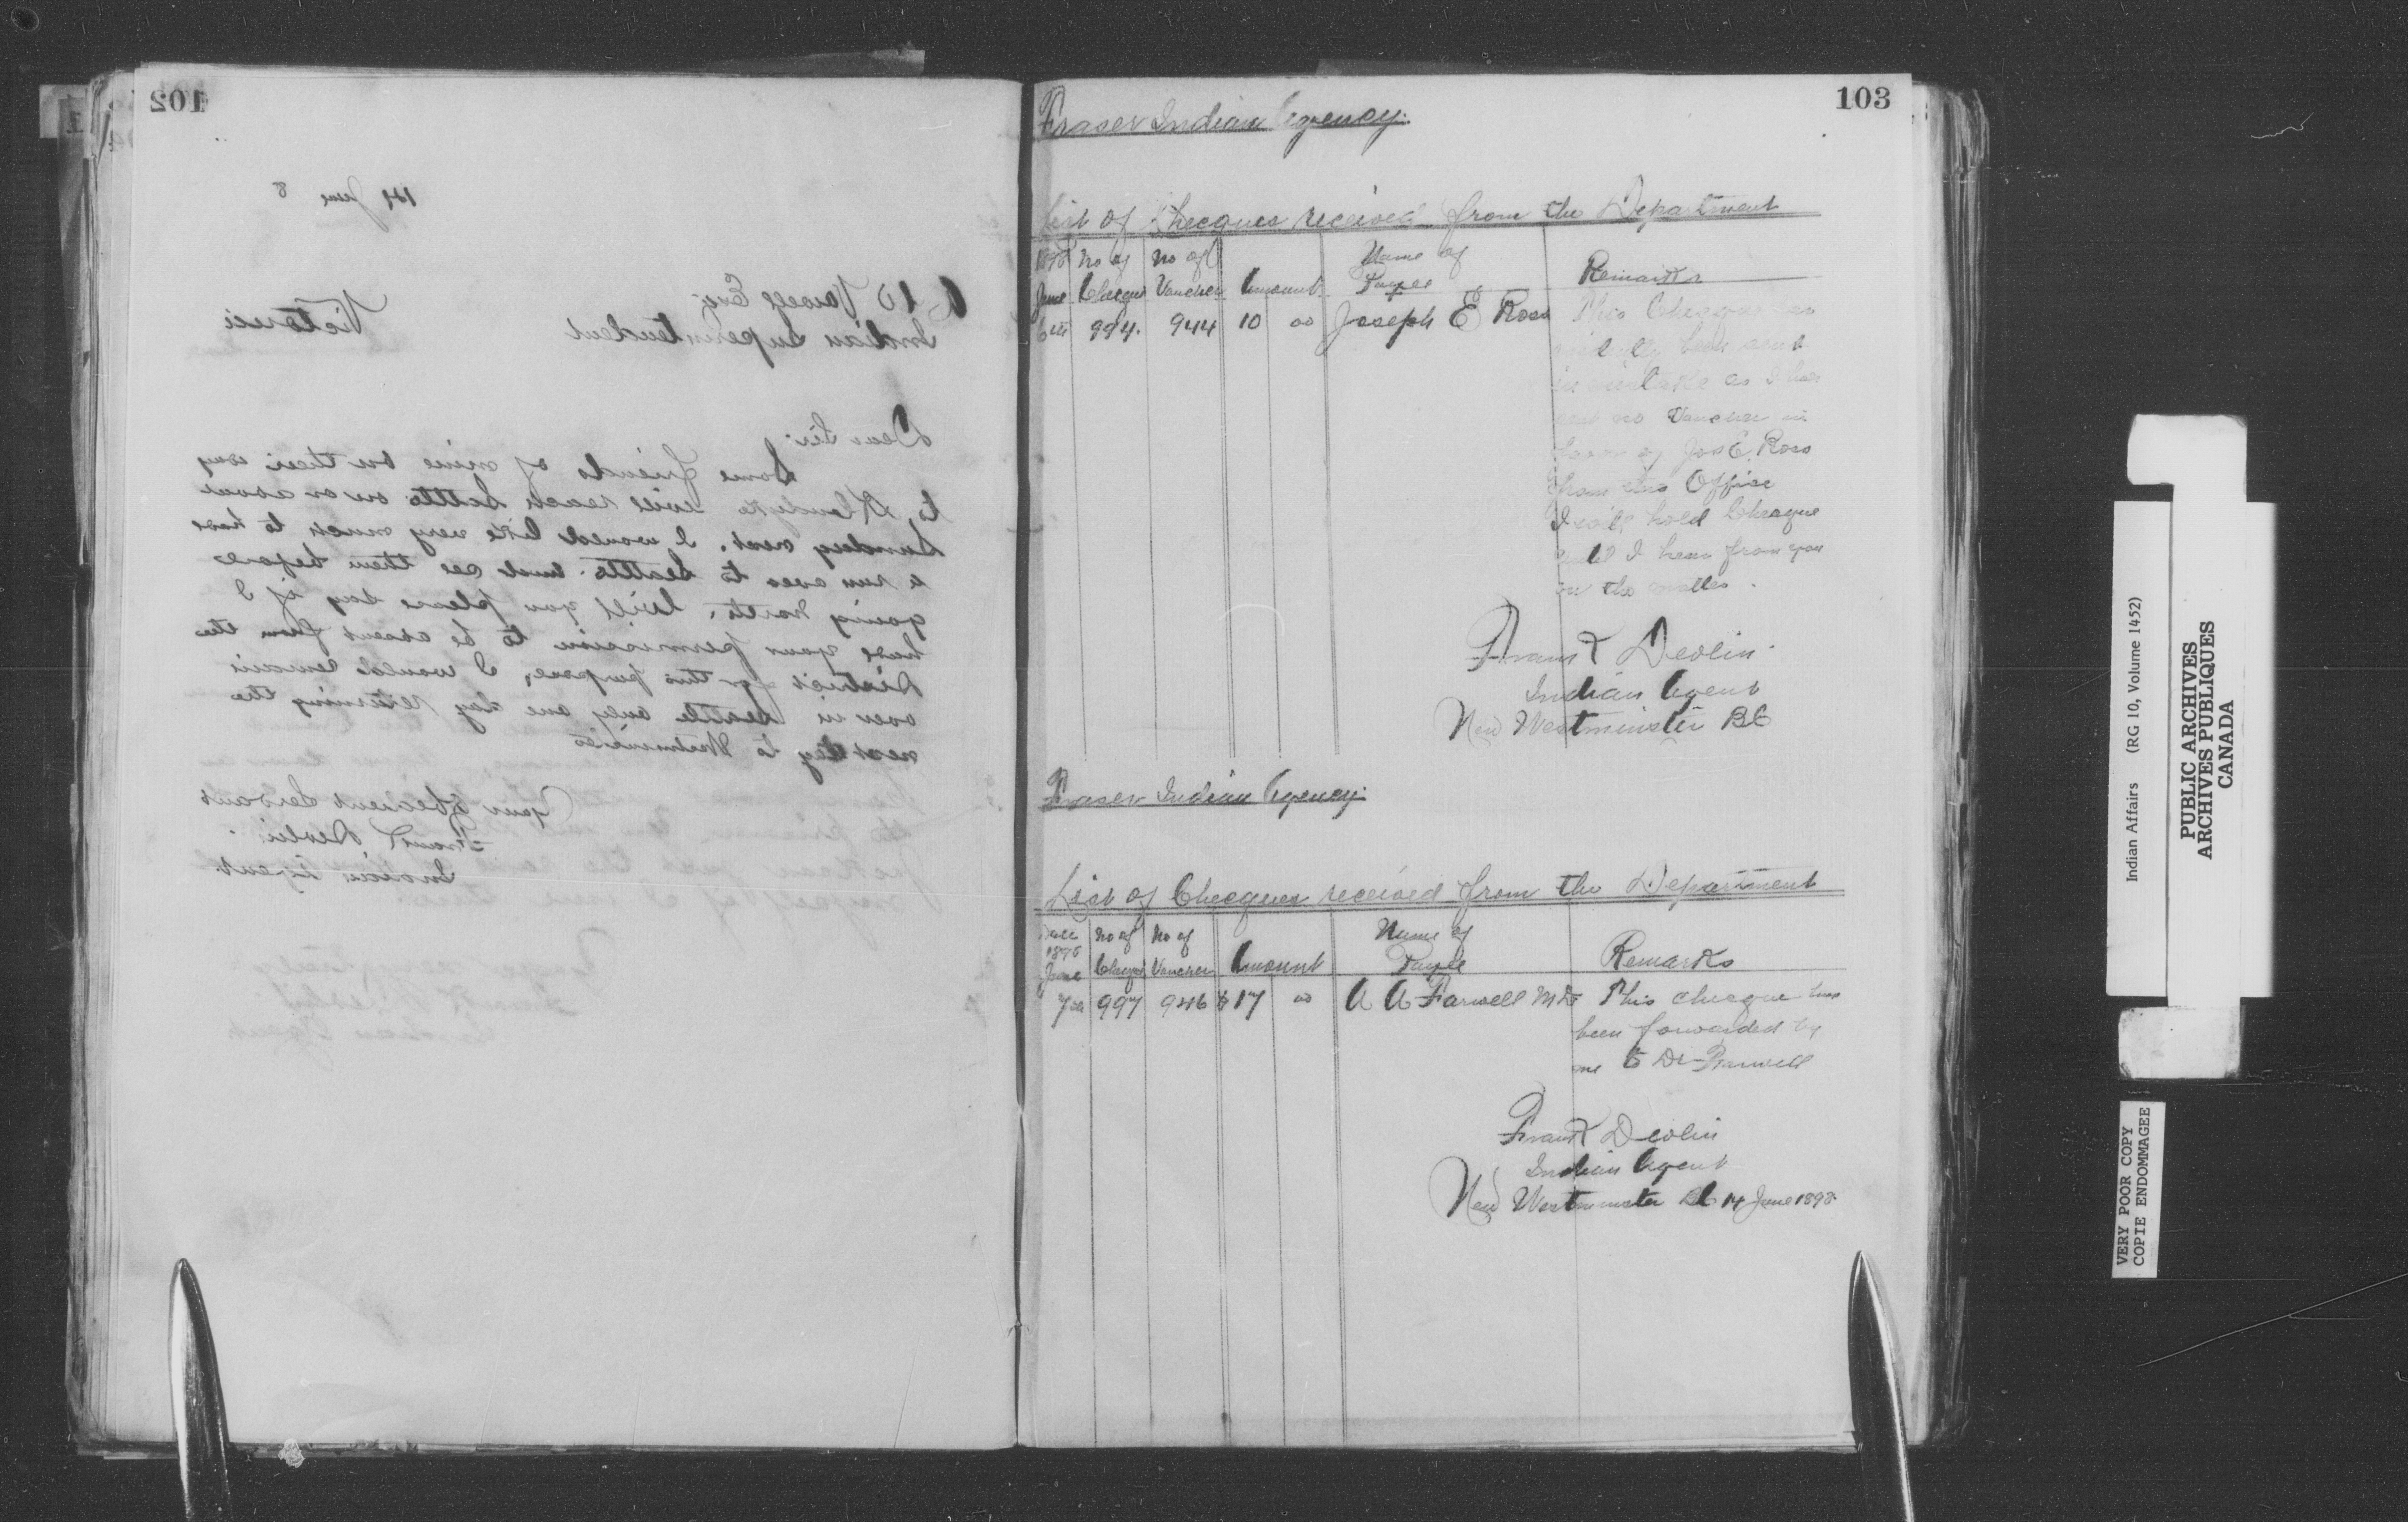 102
14th June 8
A W Vowell Esq
Indian Superintendent
Victoria
Dear Sir:
Some friends of mine on their way
to Klondyke will reach Seattle on or about
Sunday next. I would like very much to have
a run over to Seattle and see them before
going North. Will you please say if I
have your permission to be absent from the
District for this purpose, I would remain
over in Seattle only one day returning the
next day to Westminster
Your Obedient Servant
Frank Devlin
Indian Agent
103
Fraser Indian Agency.
List of Checques received from the Department
1898 No of No of Name of
June Cheque Voucher Amount Payee Remarks
6th 994. 944 10 00 Joseph E Ross This Cheque has
evidently been sent
in mistake as I have
sent no Voucher in
favor of Jos E. Ross
from this Office
I will hold Cheque
until I hear from you
in the matter.
Frank Devlin.
Indian Agent
New Westminster BC
Fraser Indian Agency.
List of Checques received from the Department
Date No of No of Name of
1898
June Cheque Voucher Amount Payee Remarks
7th 997 946 $17 00 A A Farwell MD This cheque has
been forwarded by
me to Dr Farwell
Frank Devlin
Indian Agent
New Westminster BC 14 June 1898
Indian Affairs (RG 10, Volume 1452)
PUBLIC ARCHIVES
ARCHIVES PUBLIQUES
CANADA
VERY POOR COPY
COPIE ENDOMMAGEE